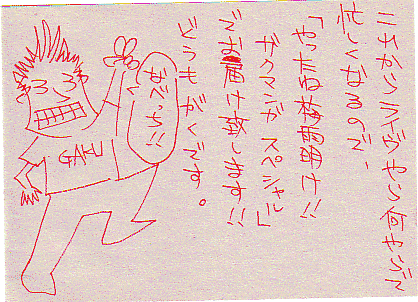 これからライヴやら何やらで
忙しくなるので、
「やったね梅雨明け!!
ガクマンガ スペシャル」
でお届け致します!!
どうもがくです。
なべっち!!
GAKU